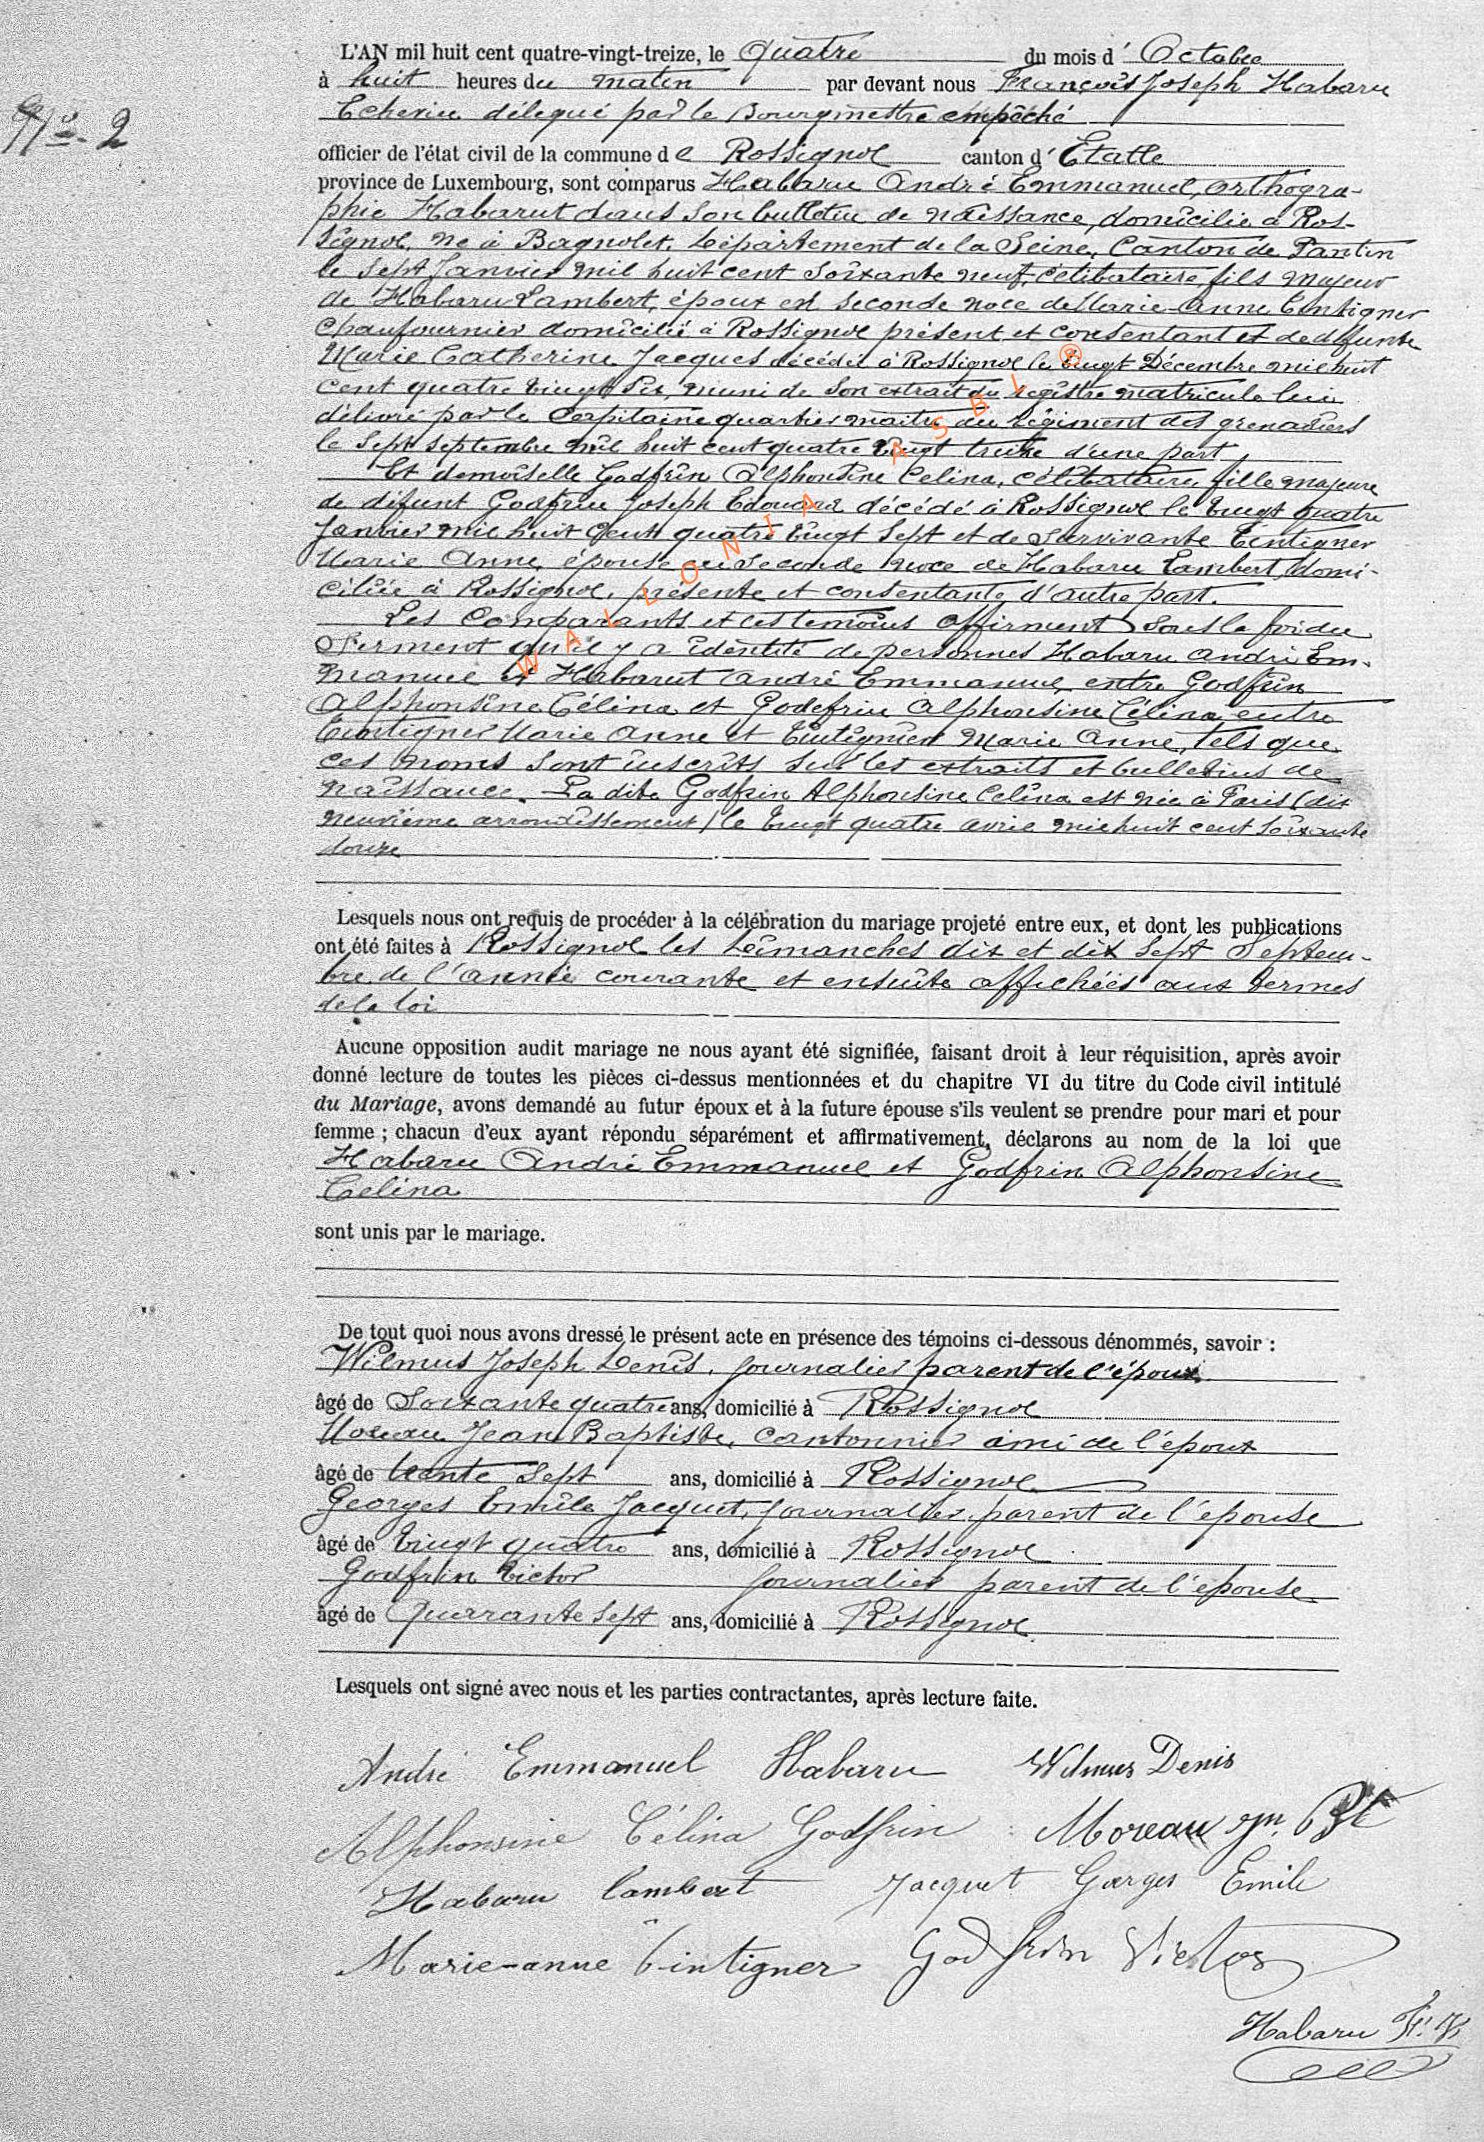 L'AN mil huit cent quatre-vingt-treize, le quatre du mois d' Octobre
à huit heures du matin par devant nous François Joseph Habaru
Echevin délégué par le Bourgmestre empêché
N° 2
officier de l'état civil de la commune de Rossignol canton d' Etalle
province de Luxembourg, sont comparus Habaru André Emmanuel, orthogra-
phié Habarut dans son bulletin de naissance, domicilié à Ros-
signol, né à Bagnolet, Département de la Seine, Canton de Pantin
le sept Janvier mil huit cent soixante neuf, célibataire, fils majeur
de Habaru Lambert, époux en seconde noce de Marie-Anne Tintigner
chaufournier domicilié à Rossignol présent et consentant et de défunte
Marie Catherine Jacques décédée à Rossignol le vingt Décembre mil huit
cent quatre vingt six, muni de son extrait du registre matricule lui
délivré par le Capitaine quartier maitre du Régiment des grenadiers
le sept septembre mil huit cent quatre vingt treize d'une part
Et demoiselle Godfrin Alphonsine Celina, célibataire, fille majeure
de défunt Godfrin Joseph Edouard décédé à Rossignol le vingt quatre
Janvier mil huit cent quatre vingt sept et de survivante Tintigner
Marie Anne, épouse en seconde noce de Habaru Lambert, domi-
ciliée à Rossignol, présente et consentante d'autre part.
Les comparants et les témoins affirment sous la foi du
serment qu'il y a identité de personnes Habaru André Em-
manuel et Habarut André Emmanuel, entre Godfrin
Alphonsine Célina et Godefrin Alphonsine Célina, entre
Tintigner Marie Anne et Marie Anne, tels que
ces noms sont inscrits sur les extraits et bulletins de
naissance. La dite Godfrin Alphonsine Celina est née à Paris (dix
neuvième arrondissement) le vingt quatre avril mil huit cent soixante
douze
Lesquels nous ont requis de procéder à la célébration du mariage projeté entre eux, et dont les publications
ont été faites à Rossignol les Dimanches dix et dix sept Septem-
bre de l'année courante et ensuite affichées aux termes
de la loi
Aucune opposition audit mariage ne nous ayant été signifiée, faisant droit à leur réquisition, après avoir
donné lecture de toutes les pièces ci-dessus mentionnées et du chapitre VI du titre du Code civil intitulé
du Mariage, avons demandé au futur époux et à la future épouse s'ils veulent se prendre pour mari et pour
femme ; chacun d'eux ayant répondu séparément et affirmativement, déclarons au nom de la loi que
Habaru André Emmanuel et Godfrin Alphonsine
Celina
sont unis par le mariage.
De tout quoi nous avons dressé le présent acte en présence des témoins ci-dessous dénommés, savoir :
Wilmus Joseph Denis, journalier parent de l'époux
âgé de Soixante quatre ans, domicilié à Rossignol
Moreau Jean Baptiste, cantonnier ami de l'époux
âgé de trente sept ans, domicilié à Rossignol
Georges Emile Jacquet, journalier, parent de l'épouse
âgé de vingt quatre ans, domicilié à Rossignol
Godfrin Victor journalier parent de l'épouse
âgé de quarrante sept ans, domicilié à Rossignol
Lesquels ont signé avec nous et les parties contractantes, après lecture faite.
André Emmanuel Habaru Wilmus Denis
Alphonsine Célina Godfrin Moreau Jn Bte
Habaru Lambert Jacquet Gorges Emile
Marie-anne Tintigner Godfrin Victor
Habaru
WALLONIA ASBL ®